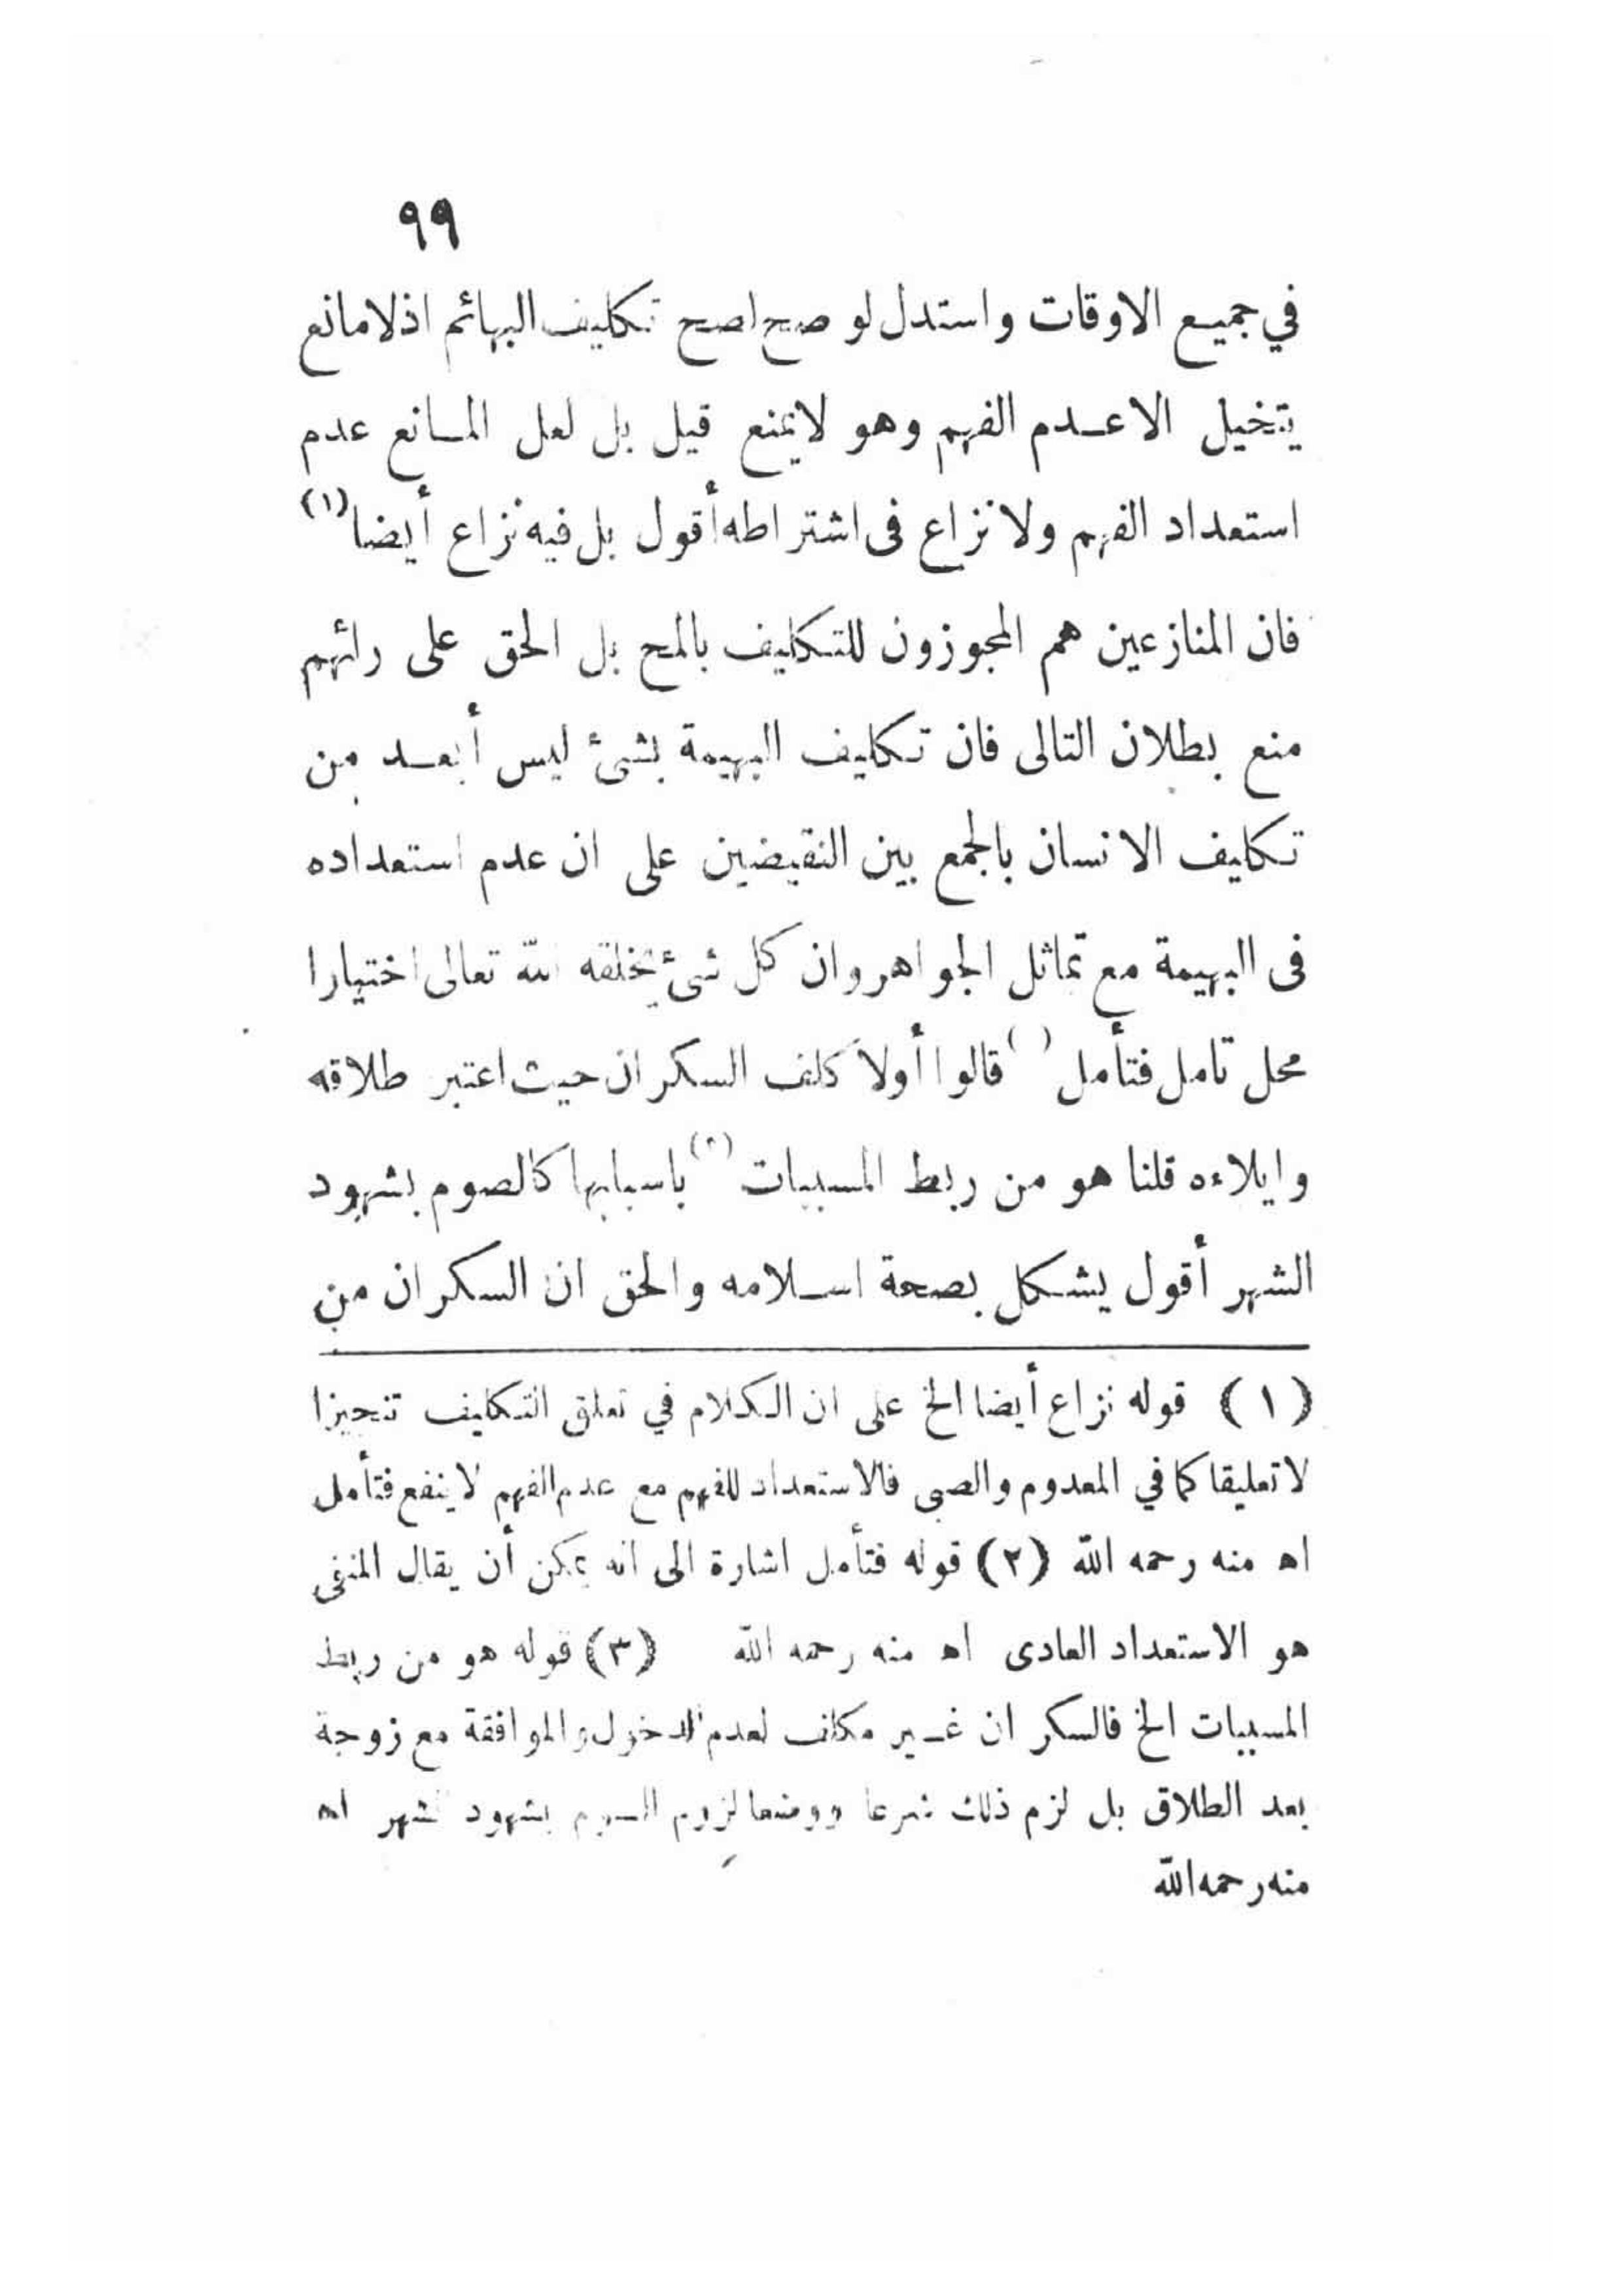 ٩٩
في جميع الاوقات واستدل لو صح اصح تكليف البهائم اذلامانع
يتخيل الاعدم الفهم وهو لايمنع قيل بل لعل المانع عدم
استعداد الفهم ولا نزاع فى اشتراطه أقول بل فيه نزاع أيضا (١)
فان المنازعين هم المجوزون للتكليف بالمح بل الحق على رائهم
منع بطلان التالى فان تكليف البهيمة بشئ ليس أبعد من
تكليف الانسان بالجمع بين النقيضين على ان عدم استعداده
فى البهيمة مع تماثل الجواهر وان كل شئ يخلقه الله تعالى اختيارا
محل تامل فتأمل ( ) قالوا أولا كلف السكران حيث اعتبر طلاقه
وايلاءه قلنا هو من ربط المسببات باسبابها كالصوم بشهود
الشهر أقول يشكل بصحة اسلامه والحق ان السكران من
(١) قوله نزاع أيضا الخ على ان الكلام في تعلق التكليف تنجيزا
لا تعليقا كما في المعدوم والصبى فالاستعداد للفهم مع عدم الفهم لا ينفع فتأمل
اه منه رحمه الله (٢) قوله فتأمل اشارة الى انه يمكن أن يقال المنفى
هو الاستعداد العادى اه منه رحمه الله (٣) قوله هو من ربط
المسببات الخ فالسكران غير مكلف لعدم الدخول والموافقة مع زوجة
بعد الطلاق بل لزم ذلك شرعا ووضعا لزوم الصوم بشهود الشهر اه
منه رحمه الله